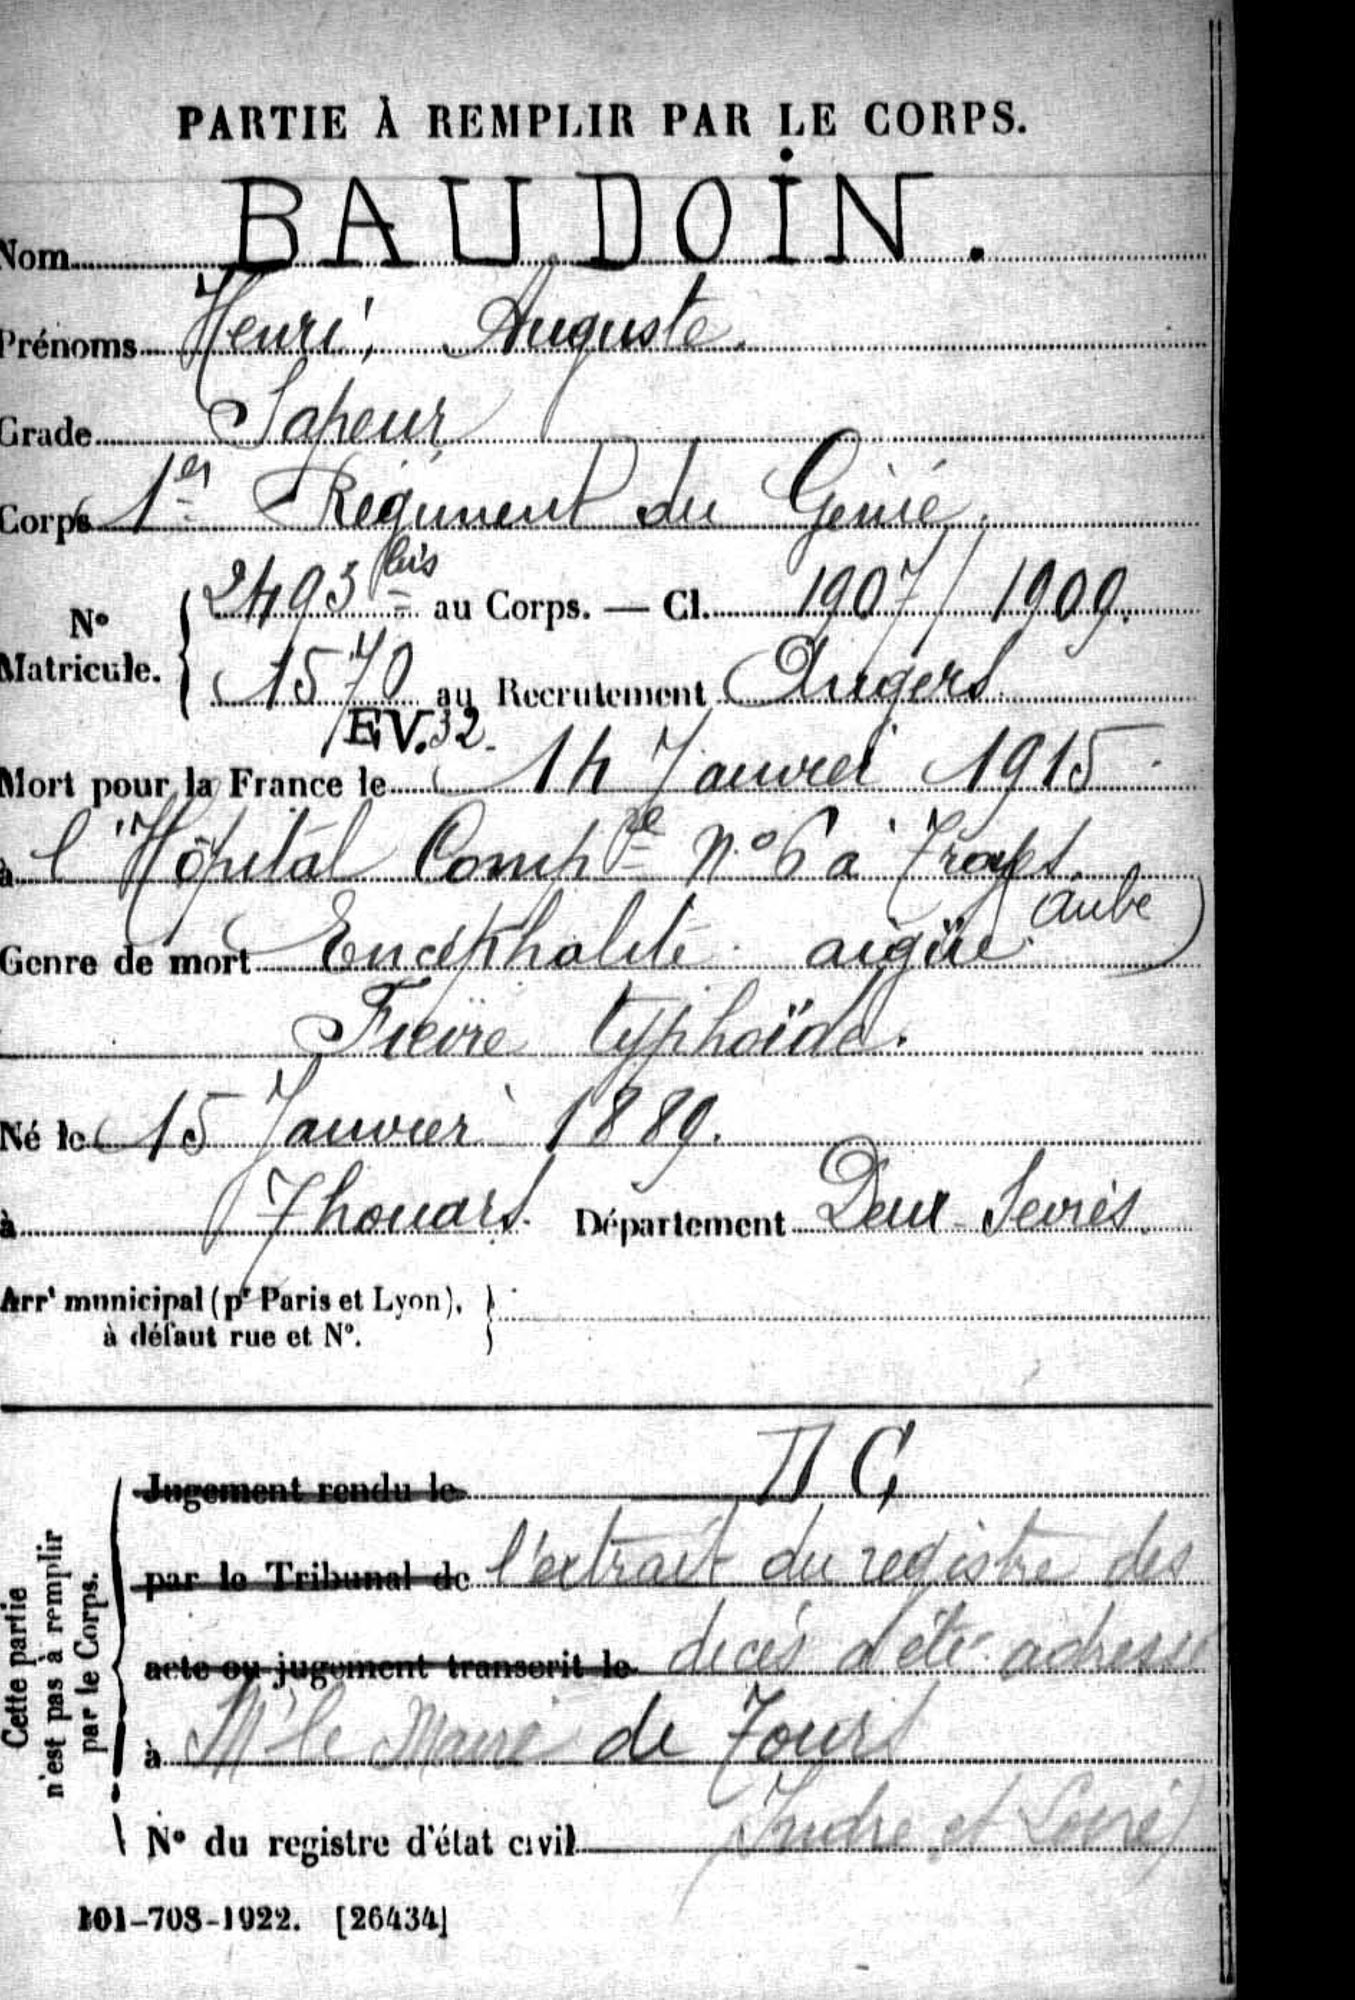 PARTIE À REMPLIR PAR LE CORPS.
Nom BAUDOIN.
Prénoms Henri, Auguste.
Grade Sapeur
Corps 1er Régiment du Génie.
N° Matricule. { 2493 bis au Corps. — Cl. 1907/1909.
1570 au Recrutement Angers
EV.32.
Mort pour la France le 14 Janvier 1915.
à l'Hôpital Compre n° 6 à Troyes
(Aube)
Genre de mort Encéphalite aigüe.
Fièvre typhoïde.
Né le 15 Janvier 1889.
à Thouars. Département Deux-Sèvres.
Arrt municipal (pr Paris et Lyon), }
à défaut rue et N°.
Cette partie
n'est pas à remplir
par le Corps.
Jugement rendu le
par le Tribunal de l'extrait du registre des
acte ou jugement transcrit le décès a été adressé
à Mr le Maire de Tours
(Indre et Loire)
N° du registre d'état civil
101-708-1922. [26434]